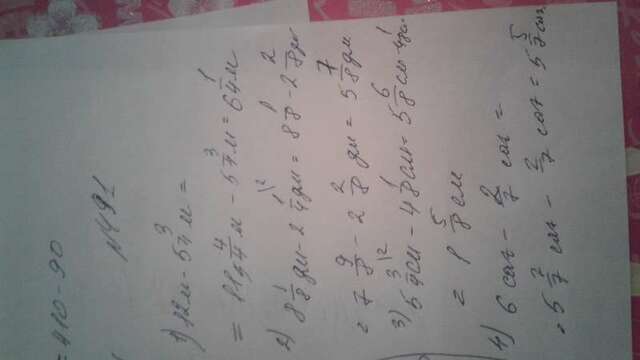 =410-90
N491
1) 12м - 5 3/4 м =
= 11 4/4 м - 5 3/4 м = 6 1/4 м
2) 8 1/8 дм - 2 1/4 дм = 8 1/8 - 2 2/8 дм
= 7 9/8 - 2 2/8 дм = 5 7/8 дм
3) 5 3/4 см - 4 1/8 см = 5 6/8 см - 4
= 1 5/8 см
4) 6 сот - 2/7 сот =
= 5 7/7 сот - 2/7 сот = 5 5/7 сот